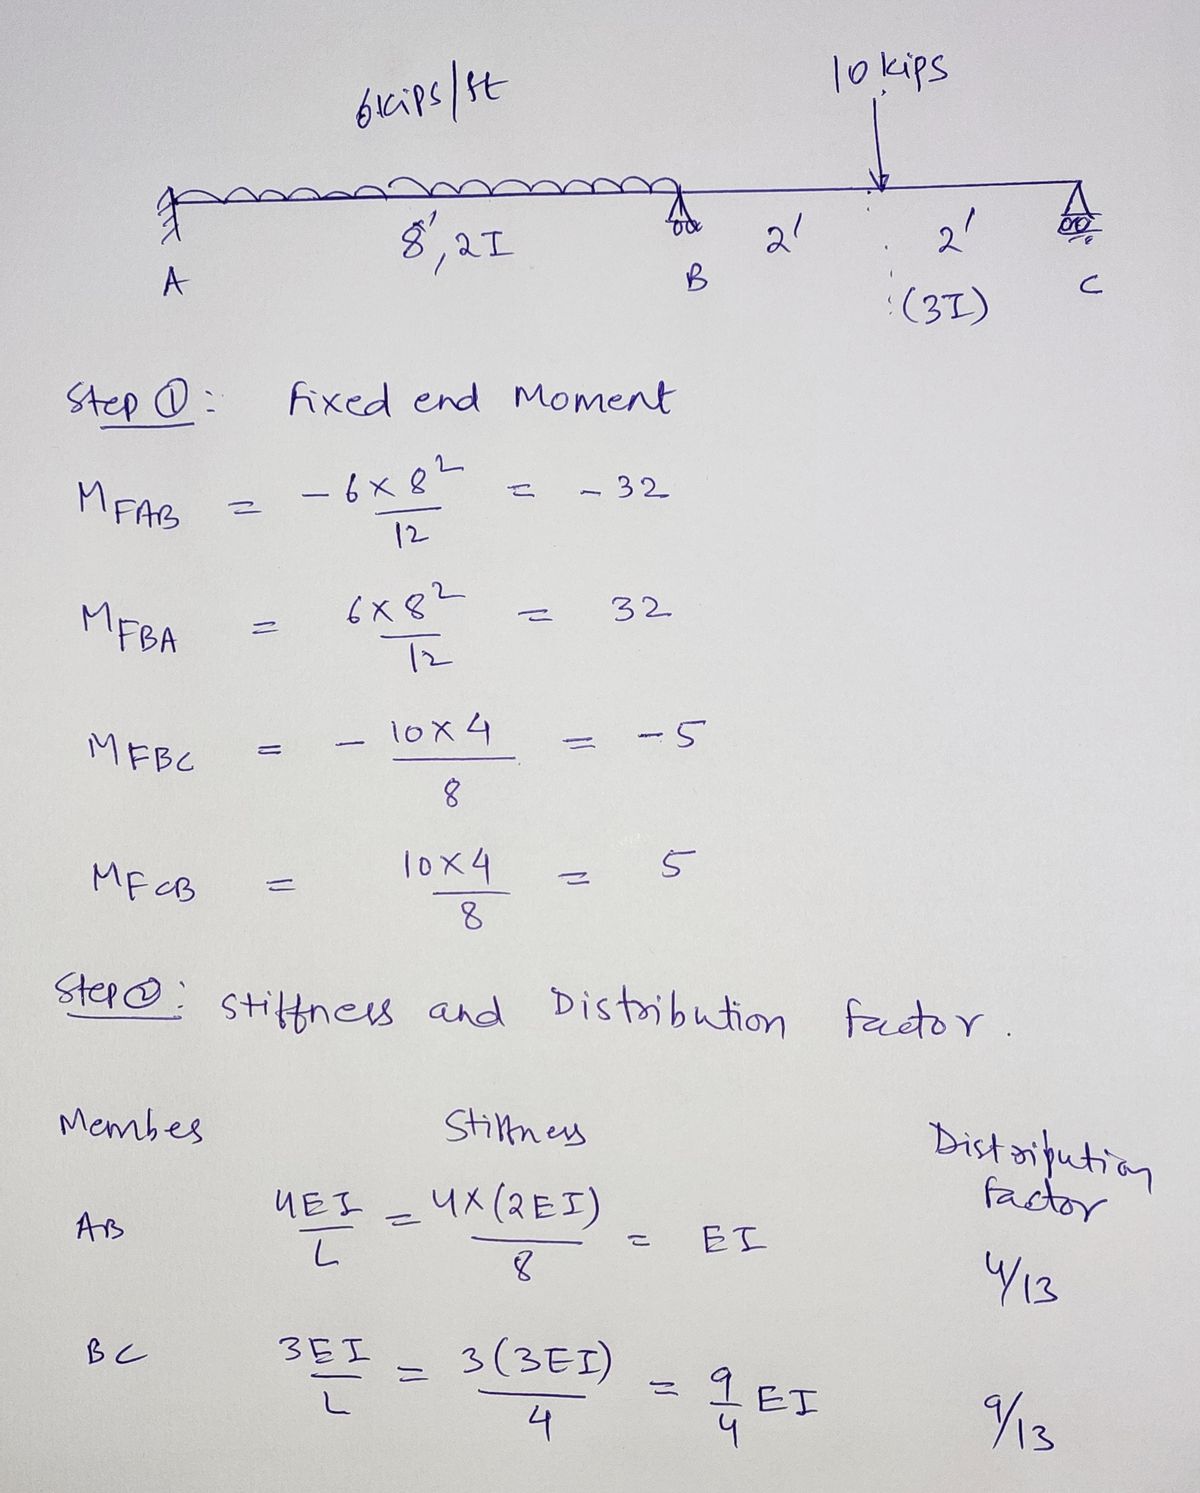 6kips/ft
10 kips
8', 2I
2'
2'
A
B
(3I)
C
Step ①: Fixed end Moment
MFAB = - 6 x 8² / 12 = - 32
MFBA = 6 x 8² / 12 = 32
MFBC = - 10 x 4 / 8 = - 5
MFCB = 10 x 4 / 8 = 5
Step ②: Stiffness and Distribution factor.
Member Stiffness Distribution factor
AB 4EI / L = 4 x (2EI) / 8 = EI 4/13
BC 3EI / L = 3(3EI) / 4 = 9/4 EI 9/13